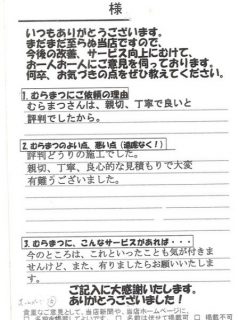 様
いつもありがとうございます。
まだまだ至らぬ当店ですので、
今後の改善、サービス向上にむけて、
お一人お一人にご意見を伺っております。
何卒、お気づきの点をぜひ教えてください。
1.むらまつにご依頼の理由
むらまつさんは、親切、丁寧で良いと
評判でしたから。
2.むらまつのよい点、悪い点（遠慮なく！）
評判どうりの施工でした。
親切、丁寧、良心的な見積もりで大変
有難うございました。
3.むらまつに、こんなサービスがあれば・・・
今のところは、これといったことも気が付きま
せんけど、また、有りましたらお願いいたしま
す。
ご記入に大感謝いたします。
ありがとうございました！
貴重なご意見として、当店新聞や、当店ホームページに、